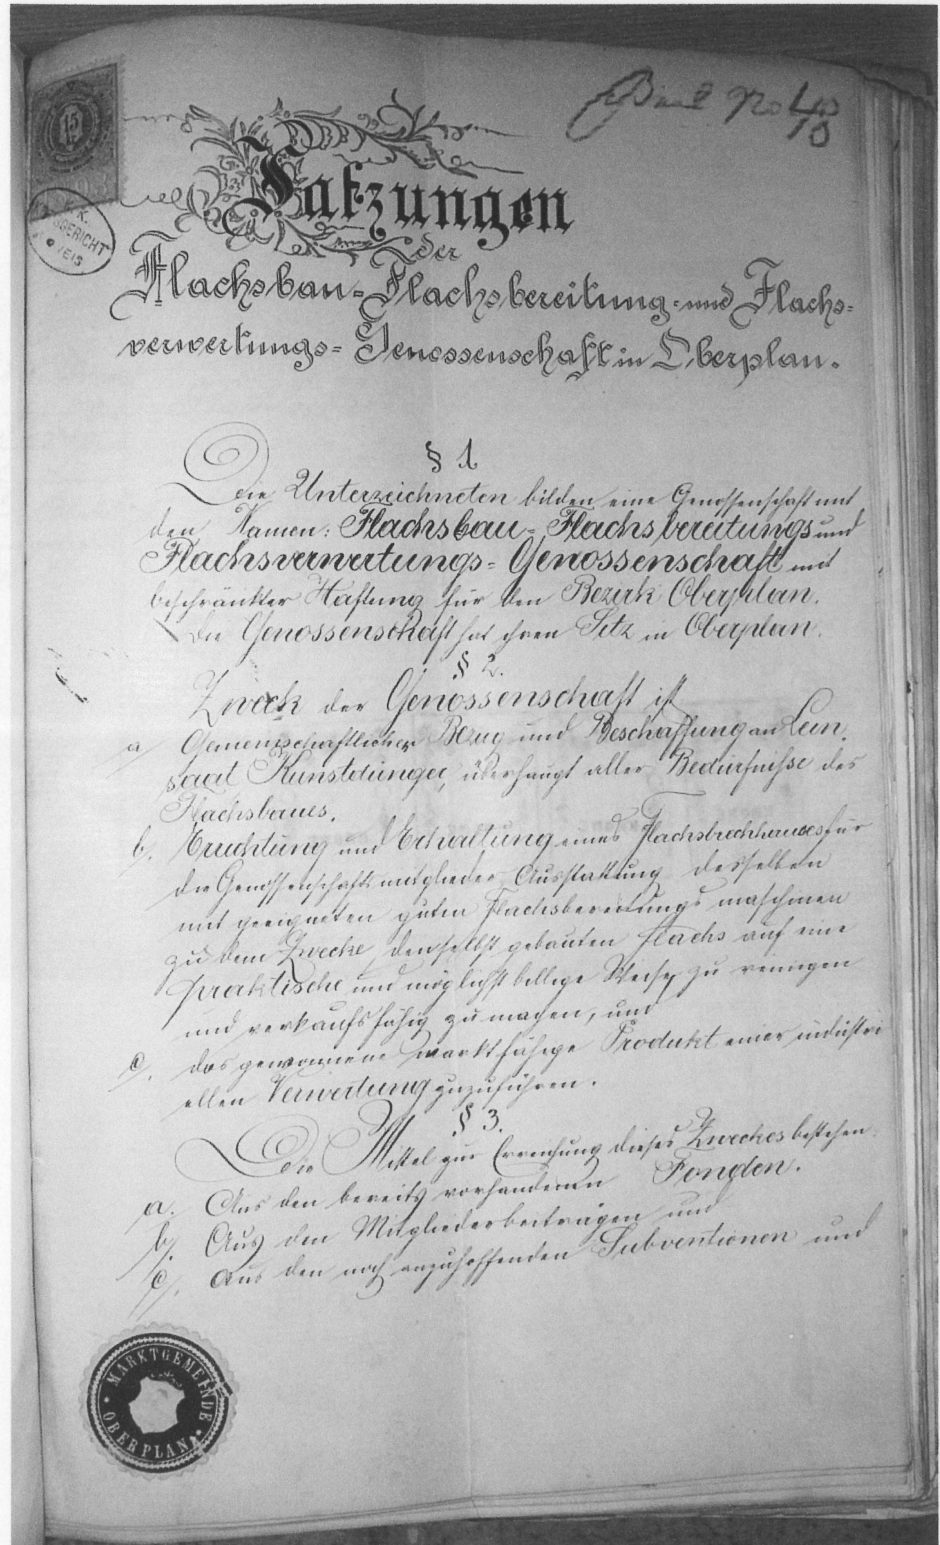 15
No 40
K.K.
GERICHT
Satzungen
der
Flachsbau-Flachsbereitung- und Flachs-
verwertungs-Genossenschaft in Oberplan.
§ 1
Die Unterzeichneten bilden eine Genossenschaft mit
den Namen: Flachsbau-Flachsbereitungs und
Flachsverwertungs-Genossenschaft mit
beschränkter Haftung für den Bezirk Oberplan.
Die Genossenschaft hat ihren Sitz in Oberplan.
§ 2.
Zweck der Genossenschaft ist
a/ Gemeinschaftlicher Bezug und Beschaffung an Lein-
saat Kunstdünger, überhaupt aller Bedürfnisse des
Flachsbaues.
b. Errichtung und Erhaltung eines Flachsbrechhauses für
die Genossenschaftsmitglieder, Ausstattung desselben
mit geeigneten guten Flachsbereitungsmaschinen
zu dem Zwecke, den selbst gebauten Flachs auf eine
praktische und möglichst billige Weise zu reinigen
und verkaufsfähig zu machen, und
c. das gewonnene marktfähige Produkt einer industri
ellen Verwertung zuzuführen.
§ 3.
Die Mittel zur Erreichung dieses Zweckes bestehen:
a. Aus den bereits vorhandenen Fonden.
b. Aus den Mitgliederbeiträgen und
c. Aus den noch anzuhoffenden Subventionen und
MARKTGEMEINDE
OBERPLAN